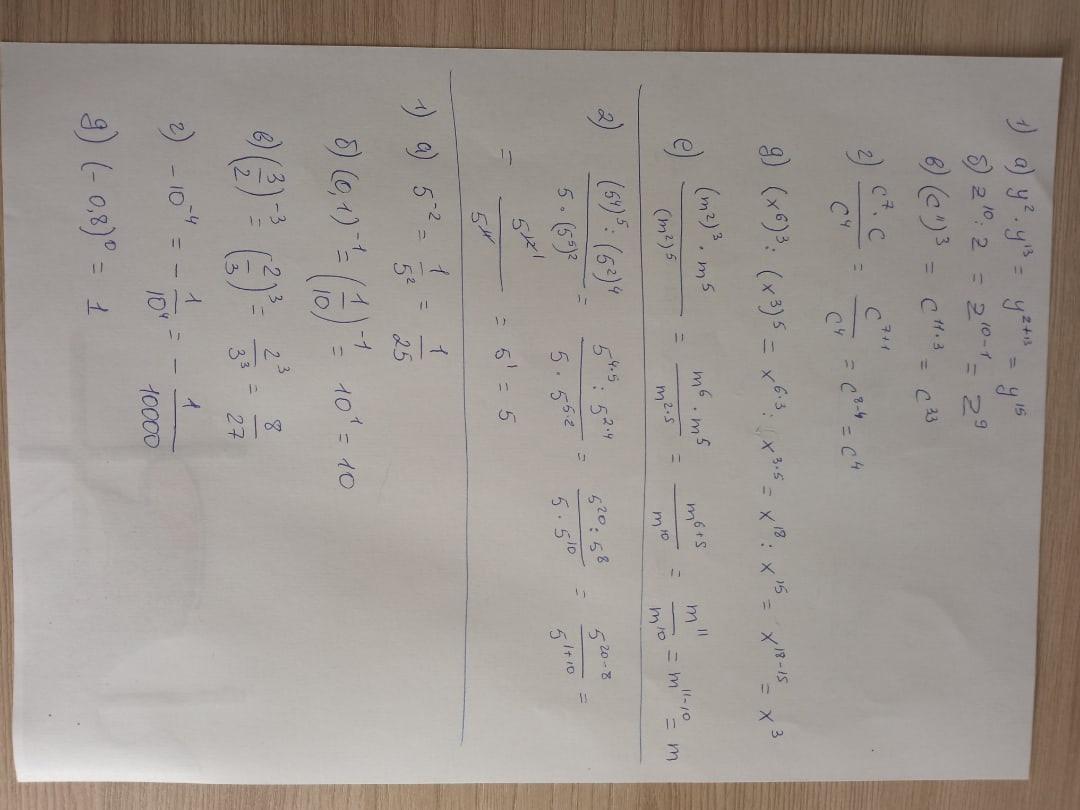 1) а) y² · y¹³ = y²⁺¹³ = y¹⁵
б) z¹⁰ : z = z¹⁰⁻¹ = z⁹
в) (c¹¹)³ = c¹¹·³ = c³³
г) (c⁷ · c)/c⁴ = c⁷⁺¹/c⁴ = c⁸⁻⁴ = c⁴
д) (x⁶)³ : (x³)⁵ = x⁶·³ : x³·⁵ = x¹⁸ : x¹⁵ = x¹⁸⁻¹⁵ = x³
е) ((m²)³ · m⁵)/(m²)⁵ = (m⁶ · m⁵)/m²·⁵ = m⁶⁺⁵/m¹⁰ = m¹¹/m¹⁰ = m¹¹⁻¹⁰ = m
2) ((5⁴)⁵ : (5²)⁴)/(5 · (5⁵)²) = (5⁴·⁵ : 5²·⁴)/(5 · 5⁵·²) = (5²⁰ : 5⁸)/(5 · 5¹⁰) = 5²⁰⁻⁸/5¹⁺¹⁰ =
= 5¹² ¹/5¹¹ = 5¹ = 5
1) а) 5⁻² = 1/5² = 1/25
б) (0,1)⁻¹ = (1/10)⁻¹ = 10¹ = 10
в) (3/2)⁻³ = (2/3)³ = 2³/3³ = 8/27
г) -10⁻⁴ = - 1/10⁴ = - 1/10000
д) (-0,8)⁰ = 1